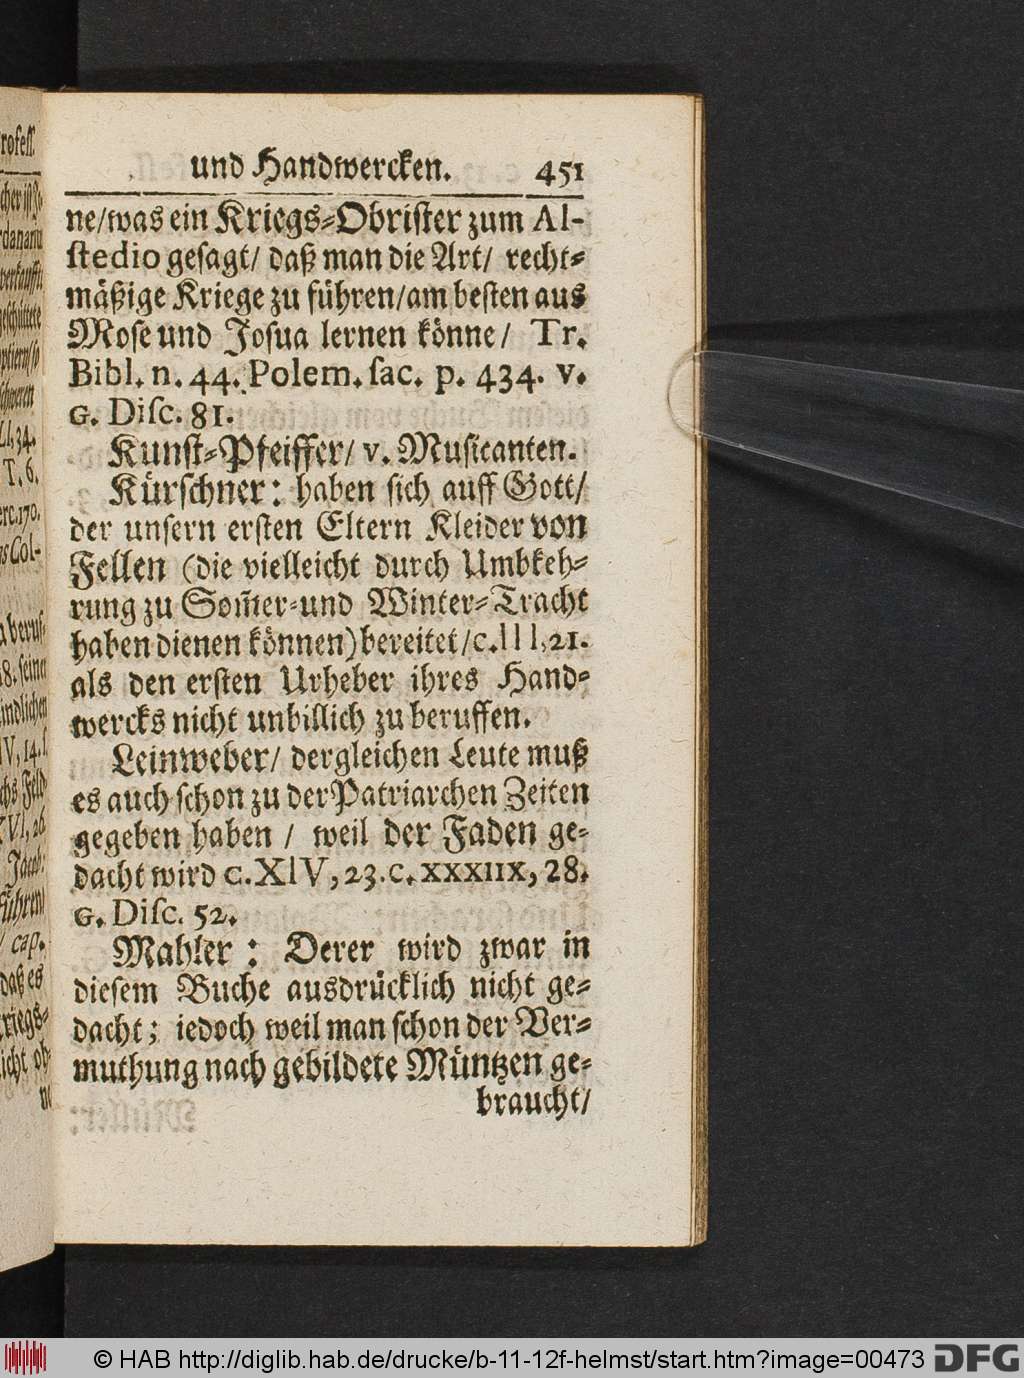 und Handwercken. 451
ne/was ein Kriegs-Obrister zum Al-
stedio gesagt/ daß man die Art/ recht-
mäßige Kriege zu führen/am besten aus
Mose und Josua lernen könne/ Tr.
Bibl. n. 44. Polem. sac. p. 434. v.
G. Disc. 81.
Kunst-Pfeiffer/ v. Musicanten.
Kürschner: haben sich auff Gott/
der unsern ersten Eltern Kleider von
Fellen (die vielleicht durch Umbkeh-
rung zu Som̃er-und Winter-Tracht
haben dienen können) bereitet/c. III, 21.
als den ersten Urheber ihres Hand-
wercks nicht unbillich zu beruffen.
Leinweber/ dergleichen Leute muß
es auch schon zu der Patriarchen Zeiten
gegeben haben / weil der Faden ge-
dacht wird c. XIV, 23. c. XXXIIX, 28.
G. Disc. 52.
Mahler: Derer wird zwar in
diesem Buche ausdrücklich nicht ge-
dacht; iedoch weil man schon der Ver-
muthung nach gebildete Müntzen ge-
braucht/
© HAB http://diglib.hab.de/drucke/b-11-12f-helmst/start.htm?image=00473 DFG